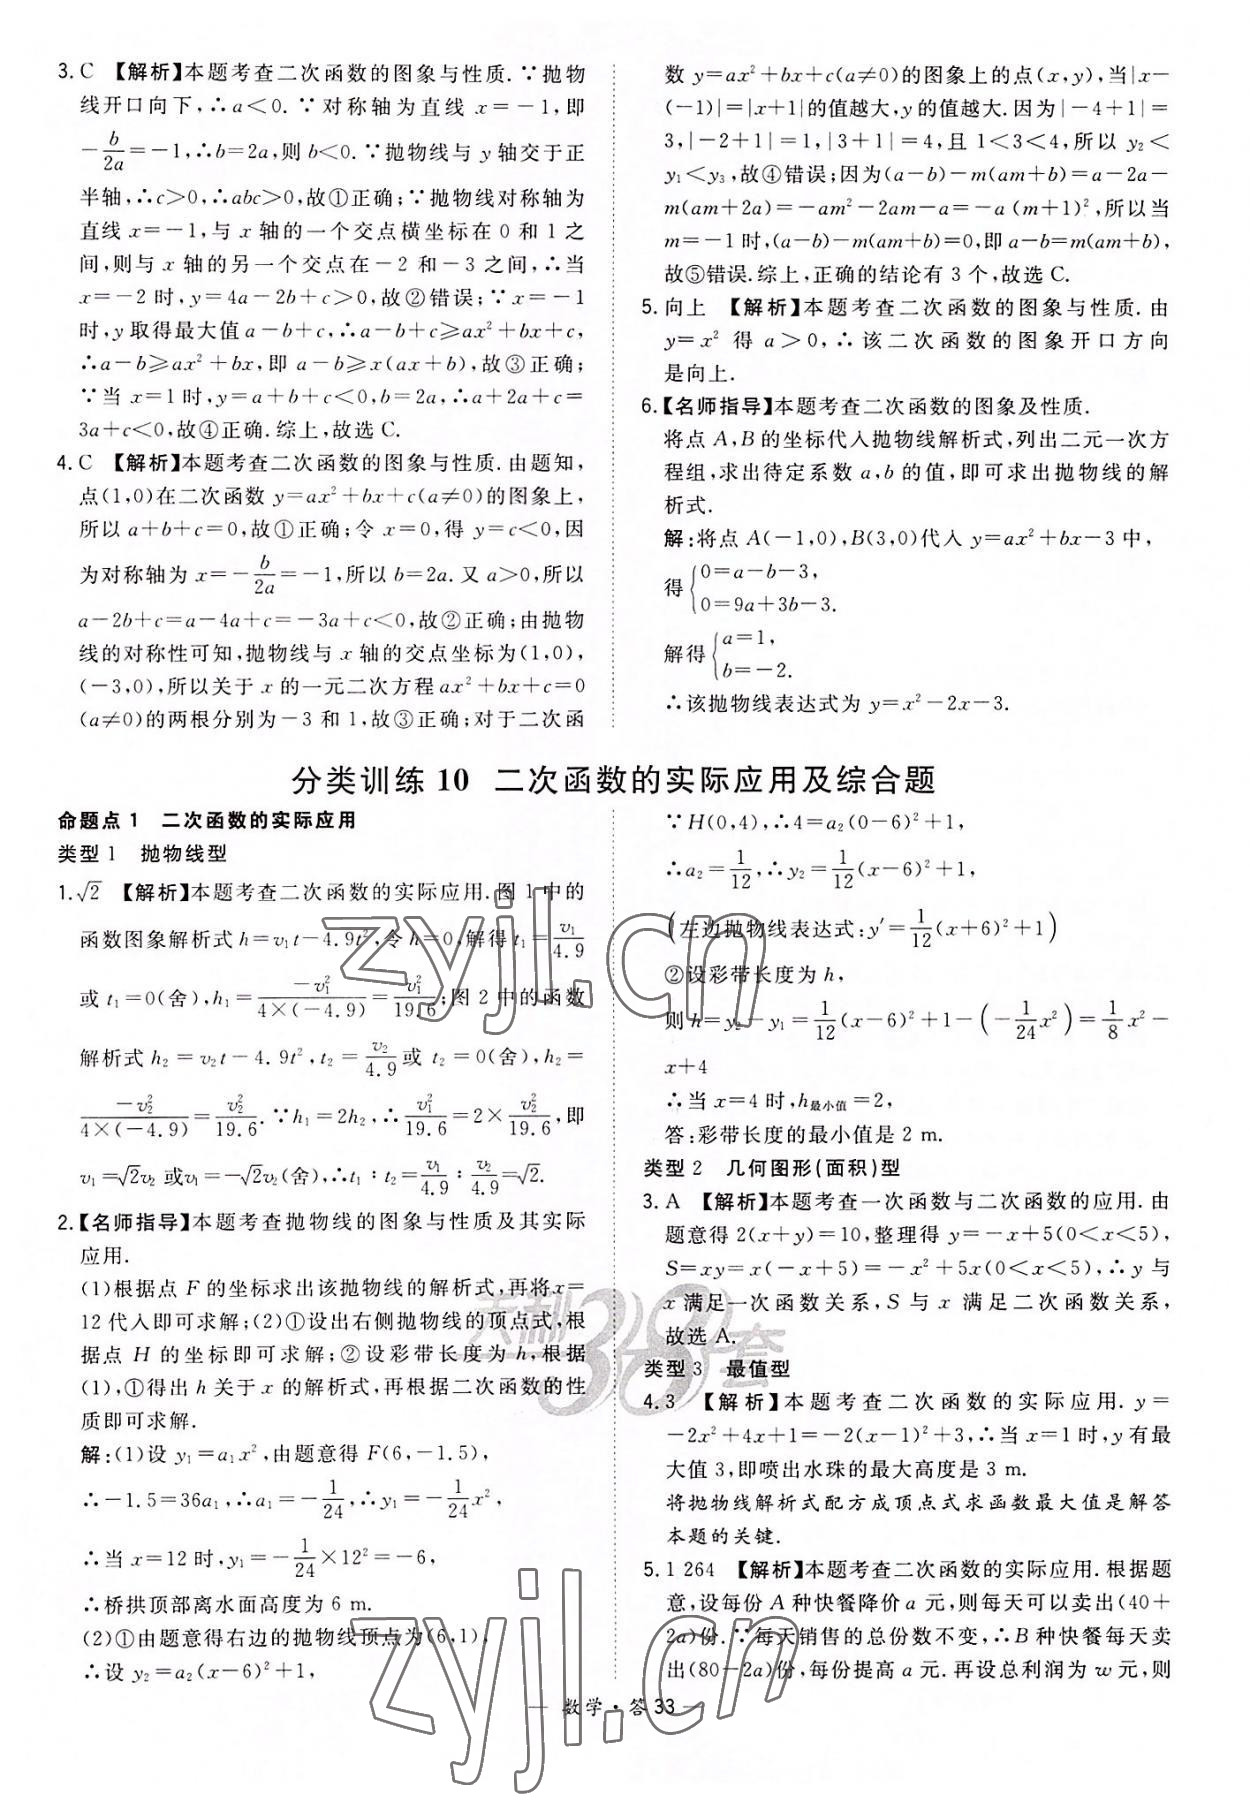 3. C 【解析】本题考查二次函数的图象与性质.∵抛物
线开口向下,∴a<0.∵对称轴为直线 x=-1,即
-b/2a=-1,∴b=2a,则 b<0.∵抛物线与 y 轴交于正
半轴,∴c>0,∴abc>0,故①正确;∵抛物线对称轴为
直线 x=-1,与 x 轴的一个交点横坐标在 0 和 1 之
间,则与 x 轴的另一个交点在-2 和-3 之间,∴当
x=-2 时,y=4a-2b+c>0,故②错误;∵x=-1
时,y 取得最大值 a-b+c,∴a-b+c≥ax²+bx+c,
∴a-b≥ax²+bx,即 a-b≥x(ax+b),故③正确;
∵当 x=1 时,y=a+b+c<0,b=2a,∴a+2a+c=
3a+c<0,故④正确.综上,故选 C.
4. C 【解析】本题考查二次函数的图象与性质.由题知,
点(1,0)在二次函数 y=ax²+bx+c(a≠0)的图象上,
所以 a+b+c=0,故①正确;令 x=0,得 y=c<0,因
为对称轴为 x=-b/2a=-1,所以 b=2a.又 a>0,所以
a-2b+c=a-4a+c=-3a+c<0,故②正确;由抛物
线的对称性可知,抛物线与 x 轴的交点坐标为(1,0),
(-3,0),所以关于 x 的一元二次方程 ax²+bx+c=0
(a≠0)的两根分别为-3 和 1,故③正确;对于二次函
数 y=ax²+bx+c(a≠0)的图象上的点(x,y),当|x-
(-1)|=|x+1|的值越大,y 的值越大.因为|-4+1|=
3,|-2+1|=1,|3+1|=4,且 1<3<4,所以 y₂<
y₁<y₃,故④错误;因为(a-b)-m(am+b)=a-2a-
m(am+2a)=-am²-2am-a=-a(m+1)²,所以当
m=-1 时,(a-b)-m(am+b)=0,即 a-b=m(am+b),
故⑤错误.综上,正确的结论有 3 个,故选 C.
5. 向上 【解析】本题考查二次函数的图象与性质.由
y=x² 得 a>0,∴该二次函数的图象开口方向
是向上.
6.【名师指导】本题考查二次函数的图象及性质.
将点 A,B 的坐标代入抛物线解析式,列出二元一次方
程组,求出待定系数 a,b 的值,即可求出抛物线的解
析式.
解:将点 A(-1,0),B(3,0)代入 y=ax²+bx-3 中,
得{0=a-b-3,
0=9a+3b-3.
解得{a=1,
b=-2.
∴该抛物线表达式为 y=x²-2x-3.
分类训练 10 二次函数的实际应用及综合题
命题点 1 二次函数的实际应用
类型 1 抛物线型
1. √2 【解析】本题考查二次函数的实际应用.图 1 中的
函数图象解析式 h=v₁t-4.9t²,令 h=0,解得 t₁=v₁/4.9
或 t₁=0(舍),h₁=-v₁²/4×(-4.9)=v₁²/19.6;图 2 中的函数
解析式 h₂=v₂t-4.9t²,t₂=v₂/4.9或 t₂=0(舍),h₂=
-v₂²/4×(-4.9)=v₂²/19.6.∵h₁=2h₂,∴v₁²/19.6=2×v₂²/19.6,即
v₁=√2v₂ 或v₁=-√2v₂(舍),∴t₁∶t₂=v₁/4.9∶v₂/4.9=√2.
2.【名师指导】本题考查抛物线的图象与性质及其实际
应用.
(1)根据点 F 的坐标求出该抛物线的解析式,再将 x=
12 代入即可求解;(2)①设出右侧抛物线的顶点式,根
据点 H 的坐标即可求解;②设彩带长度为 h,根据
(1),①得出 h 关于 x 的解析式,再根据二次函数的性
质即可求解.
解:(1)设 y₁=a₁x²,由题意得 F(6,-1.5),
∴-1.5=36a₁,∴a₁=-1/24,∴y₁=-1/24x²,
∴当 x=12 时,y₁=-1/24×12²=-6,
∴桥拱顶部离水面高度为 6 m.
(2)①由题意得右边的抛物线顶点为(6,1),
∴设 y₂=a₂(x-6)²+1,
∵H(0,4),∴4=a₂(0-6)²+1,
∴a₂=1/12,∴y₂=1/12(x-6)²+1,
(左边抛物线表达式:y′=1/12(x+6)²+1)
②设彩带长度为 h,
则 h=y₂-y₁=1/12(x-6)²+1-(-1/24x²)=1/8x²-
x+4
∴当 x=4 时,h最小值=2,
答:彩带长度的最小值是 2 m.
类型 2 几何图形(面积)型
3. A 【解析】本题考查一次函数与二次函数的应用.由
题意得 2(x+y)=10,整理得 y=-x+5(0<x<5),
S=xy=x(-x+5)=-x²+5x(0<x<5),∴y 与
x 满足一次函数关系,S 与 x 满足二次函数关系,
故选 A.
类型 3 最值型
4. 3 【解析】本题考查二次函数的实际应用.y=
-2x²+4x+1=-2(x-1)²+3,∴当 x=1 时,y 有最
大值 3,即喷出水珠的最大高度是 3 m.
将抛物线解析式配方成顶点式求函数最大值是解答
本题的关键.
5. 1 264 【解析】本题考查二次函数的实际应用.根据题
意,设每份 A 种快餐降价 a 元,则每天可以卖出(40+
2a)份.∵每天销售的总份数不变,∴B 种快餐每天卖
出(80-2a)份,每份提高 a 元.再设总利润为 w 元,则
— 数学·答 33 —
zyjl.cn
天利38套
zyjl.cn